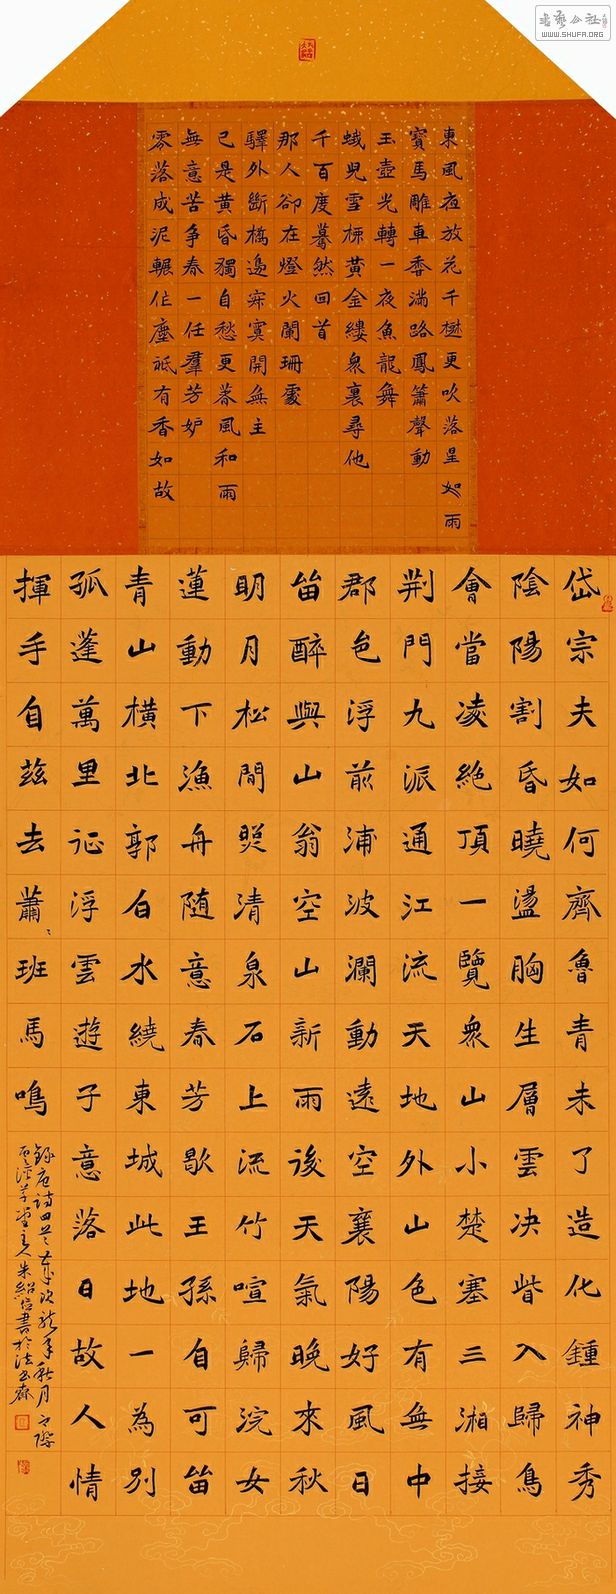 書藝公社
WWW.SHUFA.ORG
東風夜放花千樹更吹落星如雨
寶馬雕車香滿路鳳簫聲動
玉壺光轉一夜魚龍舞
蛾兒雪柳黃金縷衆裏尋他
千百度驀然回首
那人卻在燈火闌珊處
驛外斷橋邊寂寞開無主
已是黃昏獨自愁更著風和雨
無意苦爭春一任羣芳妒
零落成泥輾作塵祗有香如故
岱宗夫如何齊魯青未了造化鍾神秀
陰陽割昏曉盪胸生層雲决眥入歸鳥
會當凌絶頂一覽衆山小楚塞三湘接
荆門九派通江流天地外山色有無中
郡邑浮前浦波瀾動遠空襄陽好風日
留醉與山翁空山新雨後天氣晚來秋
明月松間照清泉石上流竹喧歸浣女
蓮動下漁舟随意春芳歇王孫自可留
青山橫北郭白水繞東城此地一為別
孤蓬萬里征浮雲遊子意落日故人情
揮手自兹去蕭〻班馬鳴
録唐詩四首歲次龍年秋月之際
草堂主人朱紹信書於